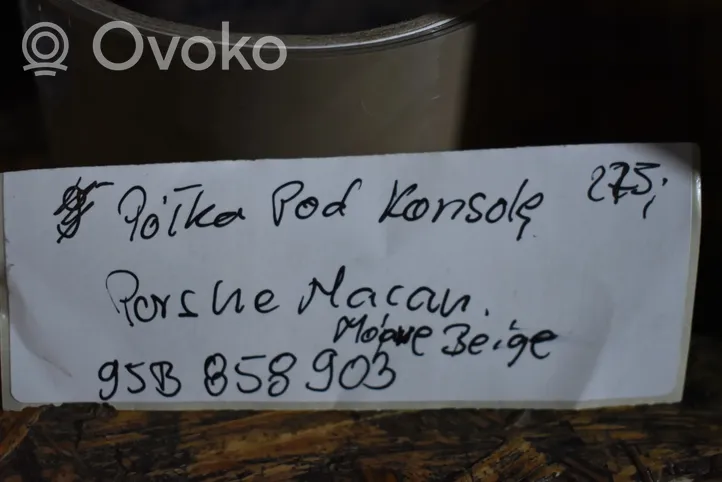 Ovoko
Półka Pod Konsolę 275,-
Porsche Macan.
Beige
95B 858 903